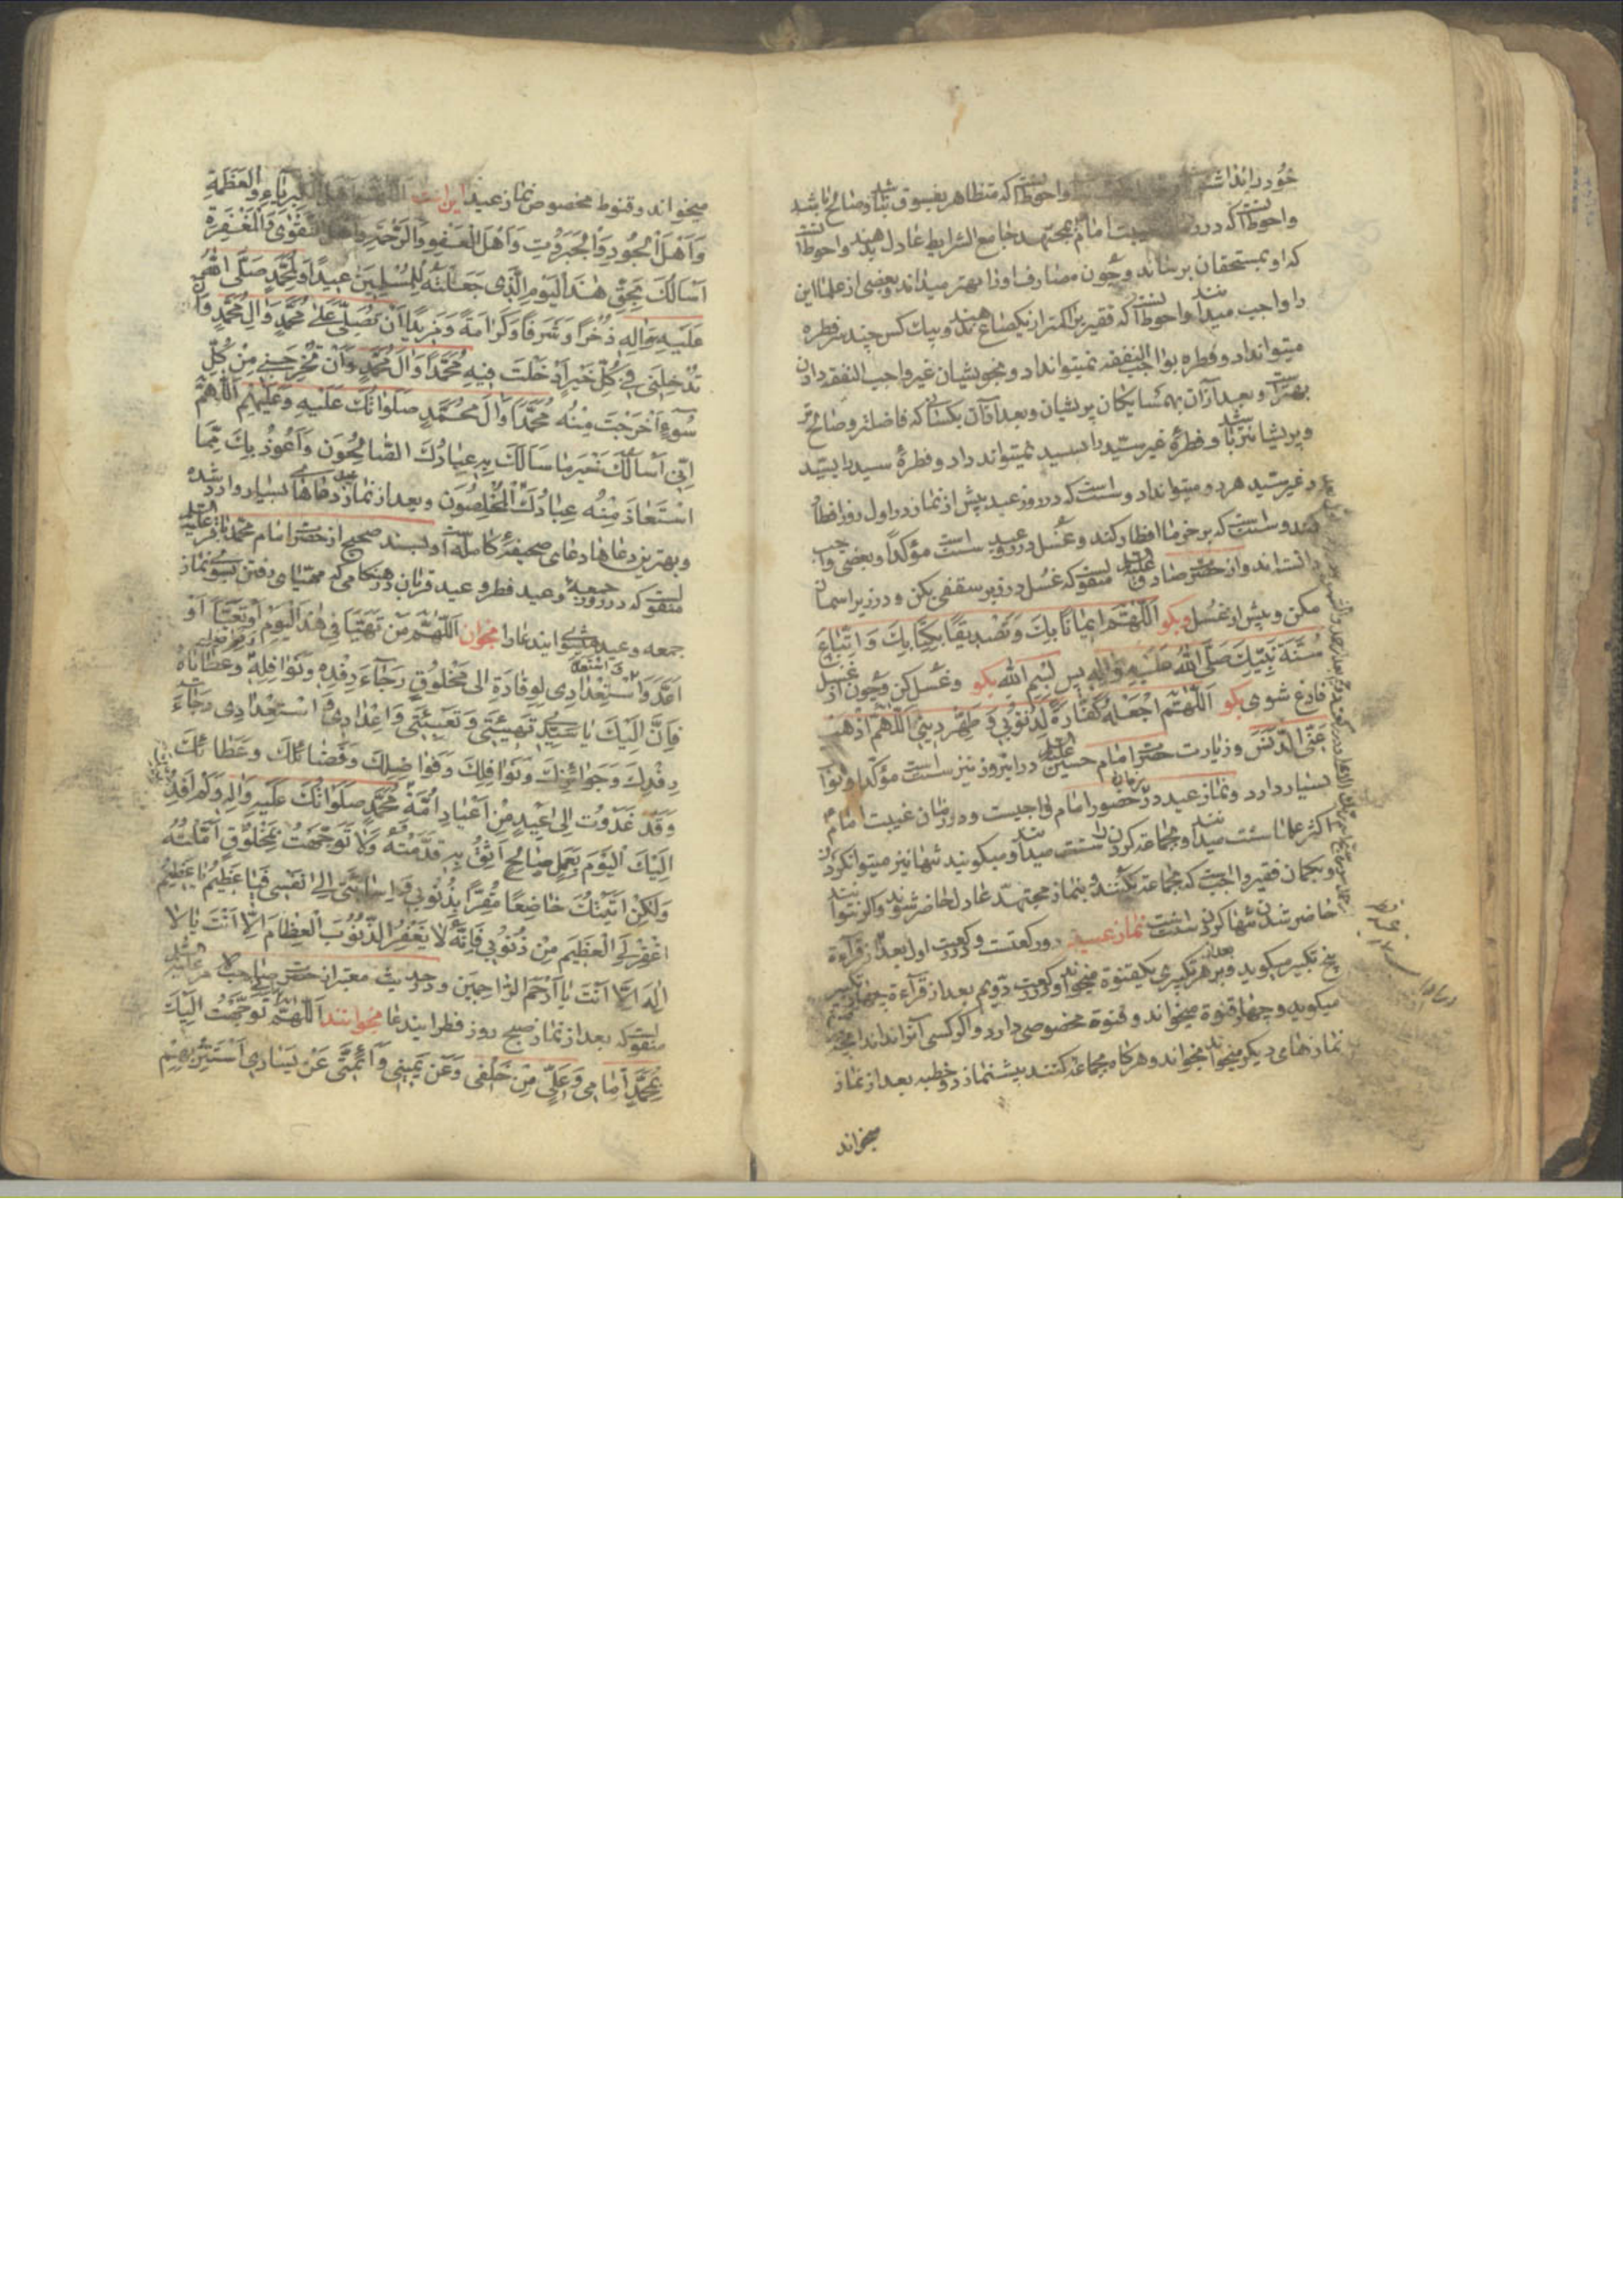 خود را نداشته واحوط آنست که متظاهر بفسوق نباشد و صالح باشد
واحوط آنست که در غیبت امام بمجتهد جامع الشرایط عادل بدهند واحوط آنست
که او بمستحقان برساند و چون مصارف او را بهتر میداند و بعضی از علما این
را واجب میدانند واحوط آنست که فقیر را کمتر از یکصاع ندهند و بیک کس چند سر فطره
میتواند داد و فطره بواجب النفقه نمیتواند داد و بخویشان غیر واجب النفقه دادن
بهتر است و بعد از آن بهمسایکان پریشان و بعد از آن بکسانی که فاضلتر و صالحتر
و پریشانتر باشد و فطرهٔ غیر سید را بسید نمیتواند داد و فطرهٔ سید را بسید
و غیر سید هر دو میتواند داد و سنت است که در روز عید پیش از نماز در اول روز افطار
کنند و سنت است که بر خرما افطار کنند و غسل در روز عید سنت است مؤکدا و بعضی واجب
دانسته‌اند و از حضرت صادق علیه السلام منقولست که غسل در زیر سقفی بکن و در زیر اسمان
مکن و پیش از غسل بکو اللّهُمَّ اِیمَانًا بِكَ وَتَصْدِیقًا بِکِتَابِكَ وَ اتِّبَاعَ
سُنَّةِ نَبِیِّكَ صَلَّی اللهُ عَلَیهِ وَآلِهِ پس بسم الله بکو و غسل کن و چون از غسل
فارغ شوی بکو اَللّهُمَّ اجْعَلْهُ کَفَّارَةً لِذُنُوبِی وَ طَهِّر دِینِی اَللّهُمَّ اَذْهِبْ
عَنِّی الدَّنَسَ و زیارت حضرت امام حسین علیه السلام در این روز نیز سنت است مؤکدا و ثواب
بسیار دارد و نماز عید در زمان حضور امام واجبست و در زمان غیبت امام
اکثر علما سنت میدانند و بجماعة کردن را سنت میدانند و میکویند تنها نیز میتوان کرد
و بکمان فقیر واجبست که بجماعة بکنند و بنماز مجتهد عادل حاضر شوند و اکر نتوانند
حاضر شدن تنها کردن سنت است نماز عید دو رکعتست و در رکعت اول بعد از قرآءة
پنج تکبیر میکوید و بعد از هر تکبیری یکقنوة میخواند و در رکعت دویم بعد از قرآءة چهار تکبیر
میکوید و چهار قنوة میخواند و قنوة مخصوصی دارد و اکر کسی آنرا نداند آنچه در
نمازهای دیکر میخواند بخواند و هرکاه بجماعة کنند پیشنماز دو خطبه بعد از نماز
میخواند
میخواند و قنوط مخصوص نماز عید این است اللّهُمَّ اَهْلَ الْکِبْرِیَاءِ وَ الْعَظَمَةِ
وَ اَهْلَ الْجُودِ وَ الْجَبَرُوتِ وَ اَهْلَ الْعَفْوِ وَ الرَّحْمَةِ وَ اَهْلَ التَّقْوٰی وَ الْمَغْفِرَةِ
اَسْاَلُكَ بِحَقِّ هٰذَا الْیَوْمِ الَّذِی جَعَلْتَهُ لِلْمُسْلِمِینَ عِیدًا وَ لِمُحَمَّدٍ صَلَّی اللهُ
عَلَیْهِ وَالِهِ ذُخْرًا وَ شَرَفًا وَ کَرَامَةً وَ مَزِیدًا اَنْ تُصَلِّیَ عَلٰی مُحَمَّدٍ وَ الِ مُحَمَّدٍ وَ اَنْ
تُدْخِلَنِی فِی کُلِّ خَیْرٍ اَدْخَلْتَ فِیهِ مُحَمَّدًا وَ الَ مُحَمَّدٍ وَ اَنْ تُخْرِجَنِی مِنْ کُلِّ
سُوءٍ اَخْرَجْتَ مِنْهُ مُحَمَّدًا وَ الَ مُحَمَّدٍ صَلَوَاتُكَ عَلَیْهِ وَ عَلَیْهِمْ اَللّهُمَّ
اِنِّی اَسْاَلُكَ خَیْرَ مَا سَاَلَكَ بِهِ عِبَادُكَ الصَّالِحُونَ وَ اَعُوذُ بِكَ مِمَّا
اسْتَعَاذَ مِنْهُ عِبَادُكَ الْمُخْلِصُونَ و بعد از نماز عید دعاهای بسیار وارد شده
و بهترین دعاها دعای صحیفهٔ کامله است و بسند صحیح از حضرت امام محمد باقر علیه السلام
منقولست که در روز جمعه و عید فطر و عید قربان در هنکامی که مهیای رفتن بسوی نماز
جمعه و عید میشوی این دعا را بخوان اَللّهُمَّ مَنْ تَهَیَّاَ فِی هٰذَا الْیَوْمِ اَوْ تَعَبَّاَ اَوْ
اَعَدَّ وَ اسْتَعَدَّ لِوِفَادَةٍ اِلٰی مَخْلُوقٍ رَجَاءَ رِفْدِهِ وَ نَوَافِلِهِ وَ عَطَایَاهُ
فَاِنَّ اِلَیْكَ یَا سَیِّدِی تَهْیِئَتِی وَ تَعْبِئَتِی وَ اِعْدَادِی وَ اسْتِعْدَادِی رَجَاءَ
رِفْدِكَ وَ جَوَائِزِكَ وَ نَوَافِلِكَ وَ فَوَاضِلِكَ وَ فَضَائِلِكَ وَ عَطَائِكَ
وَ قَدْ غَدَوْتُ اِلٰی عِیدٍ مِنْ اَعْیَادِ اُمَّةِ مُحَمَّدٍ صَلَوَاتُكَ عَلَیْهِ وَالِهِ وَ لَمْ اَفِدْ
اِلَیْكَ الْیَوْمَ بِعَمَلٍ صَالِحٍ اَثِقُ بِهِ قَدَّمْتُهُ وَ لَا تَوَجَّهْتُ بِمَخْلُوقٍ اَمَّلْتُهُ
وَ لٰکِنْ اَتَیْتُكَ خَاضِعًا مُقِرًّا بِذُنُوبِی وَ اِسَائَتِی اِلٰی نَفْسِی فَیَا عَظِیمُ یَا عَظِیمُ
اغْفِرْ لِیَ الْعَظِیمَ مِنْ ذُنُوبِی فَاِنَّهُ لَا یَغْفِرُ الذُّنُوبَ الْعِظَامَ اِلَّا اَنْتَ یَا لَا
اِلٰهَ اِلَّا اَنْتَ یَا اَرْحَمَ الرَّاحِمِینَ و در حدیث معتبر از حضرت صاحب الامر علیه السلام
منقولست که بعد از نماز صبح روز فطر این دعا بخوانند اَللّهُمَّ اِنِّی تَوَجَّهْتُ اِلَیْكَ
بِمُحَمَّدٍ اَمَامِی وَ عَلِیٍّ مِنْ خَلْفِی وَ عَنْ یَمِینِی وَ اَئِمَّتِی عَنْ یَسَارِی اَسْتَتِرُ بِهِمْ